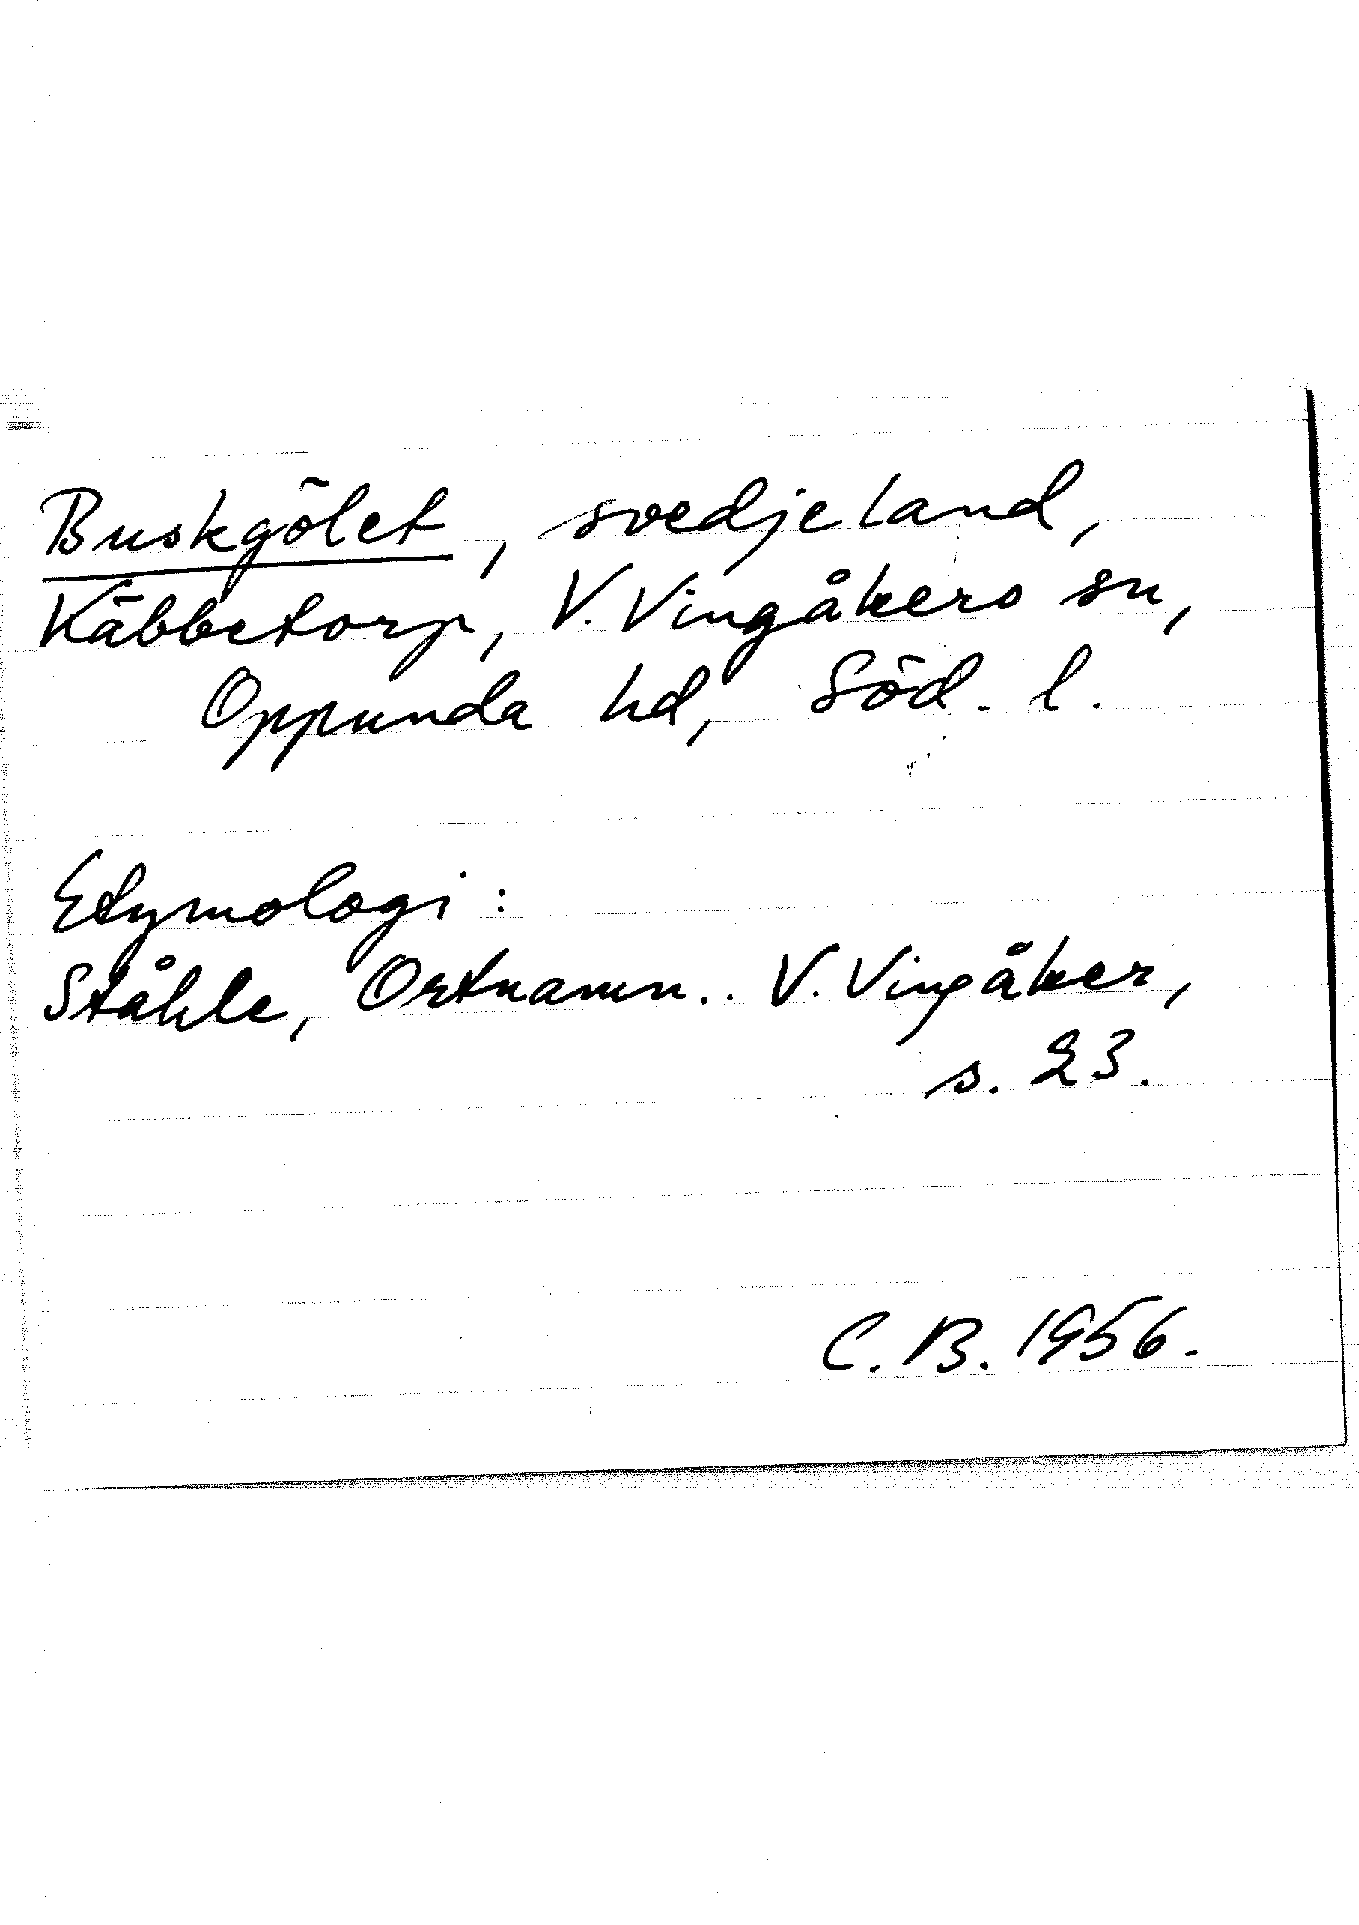 Buskgölet, svedjeland,
Käbbetorp, V. Vingåkers sn,
Oppunda hd, Söd. l.
Etymologi:
Ståhle, Ortnamn.. V. Vingåker,
s. 23.
C. B. 1956.